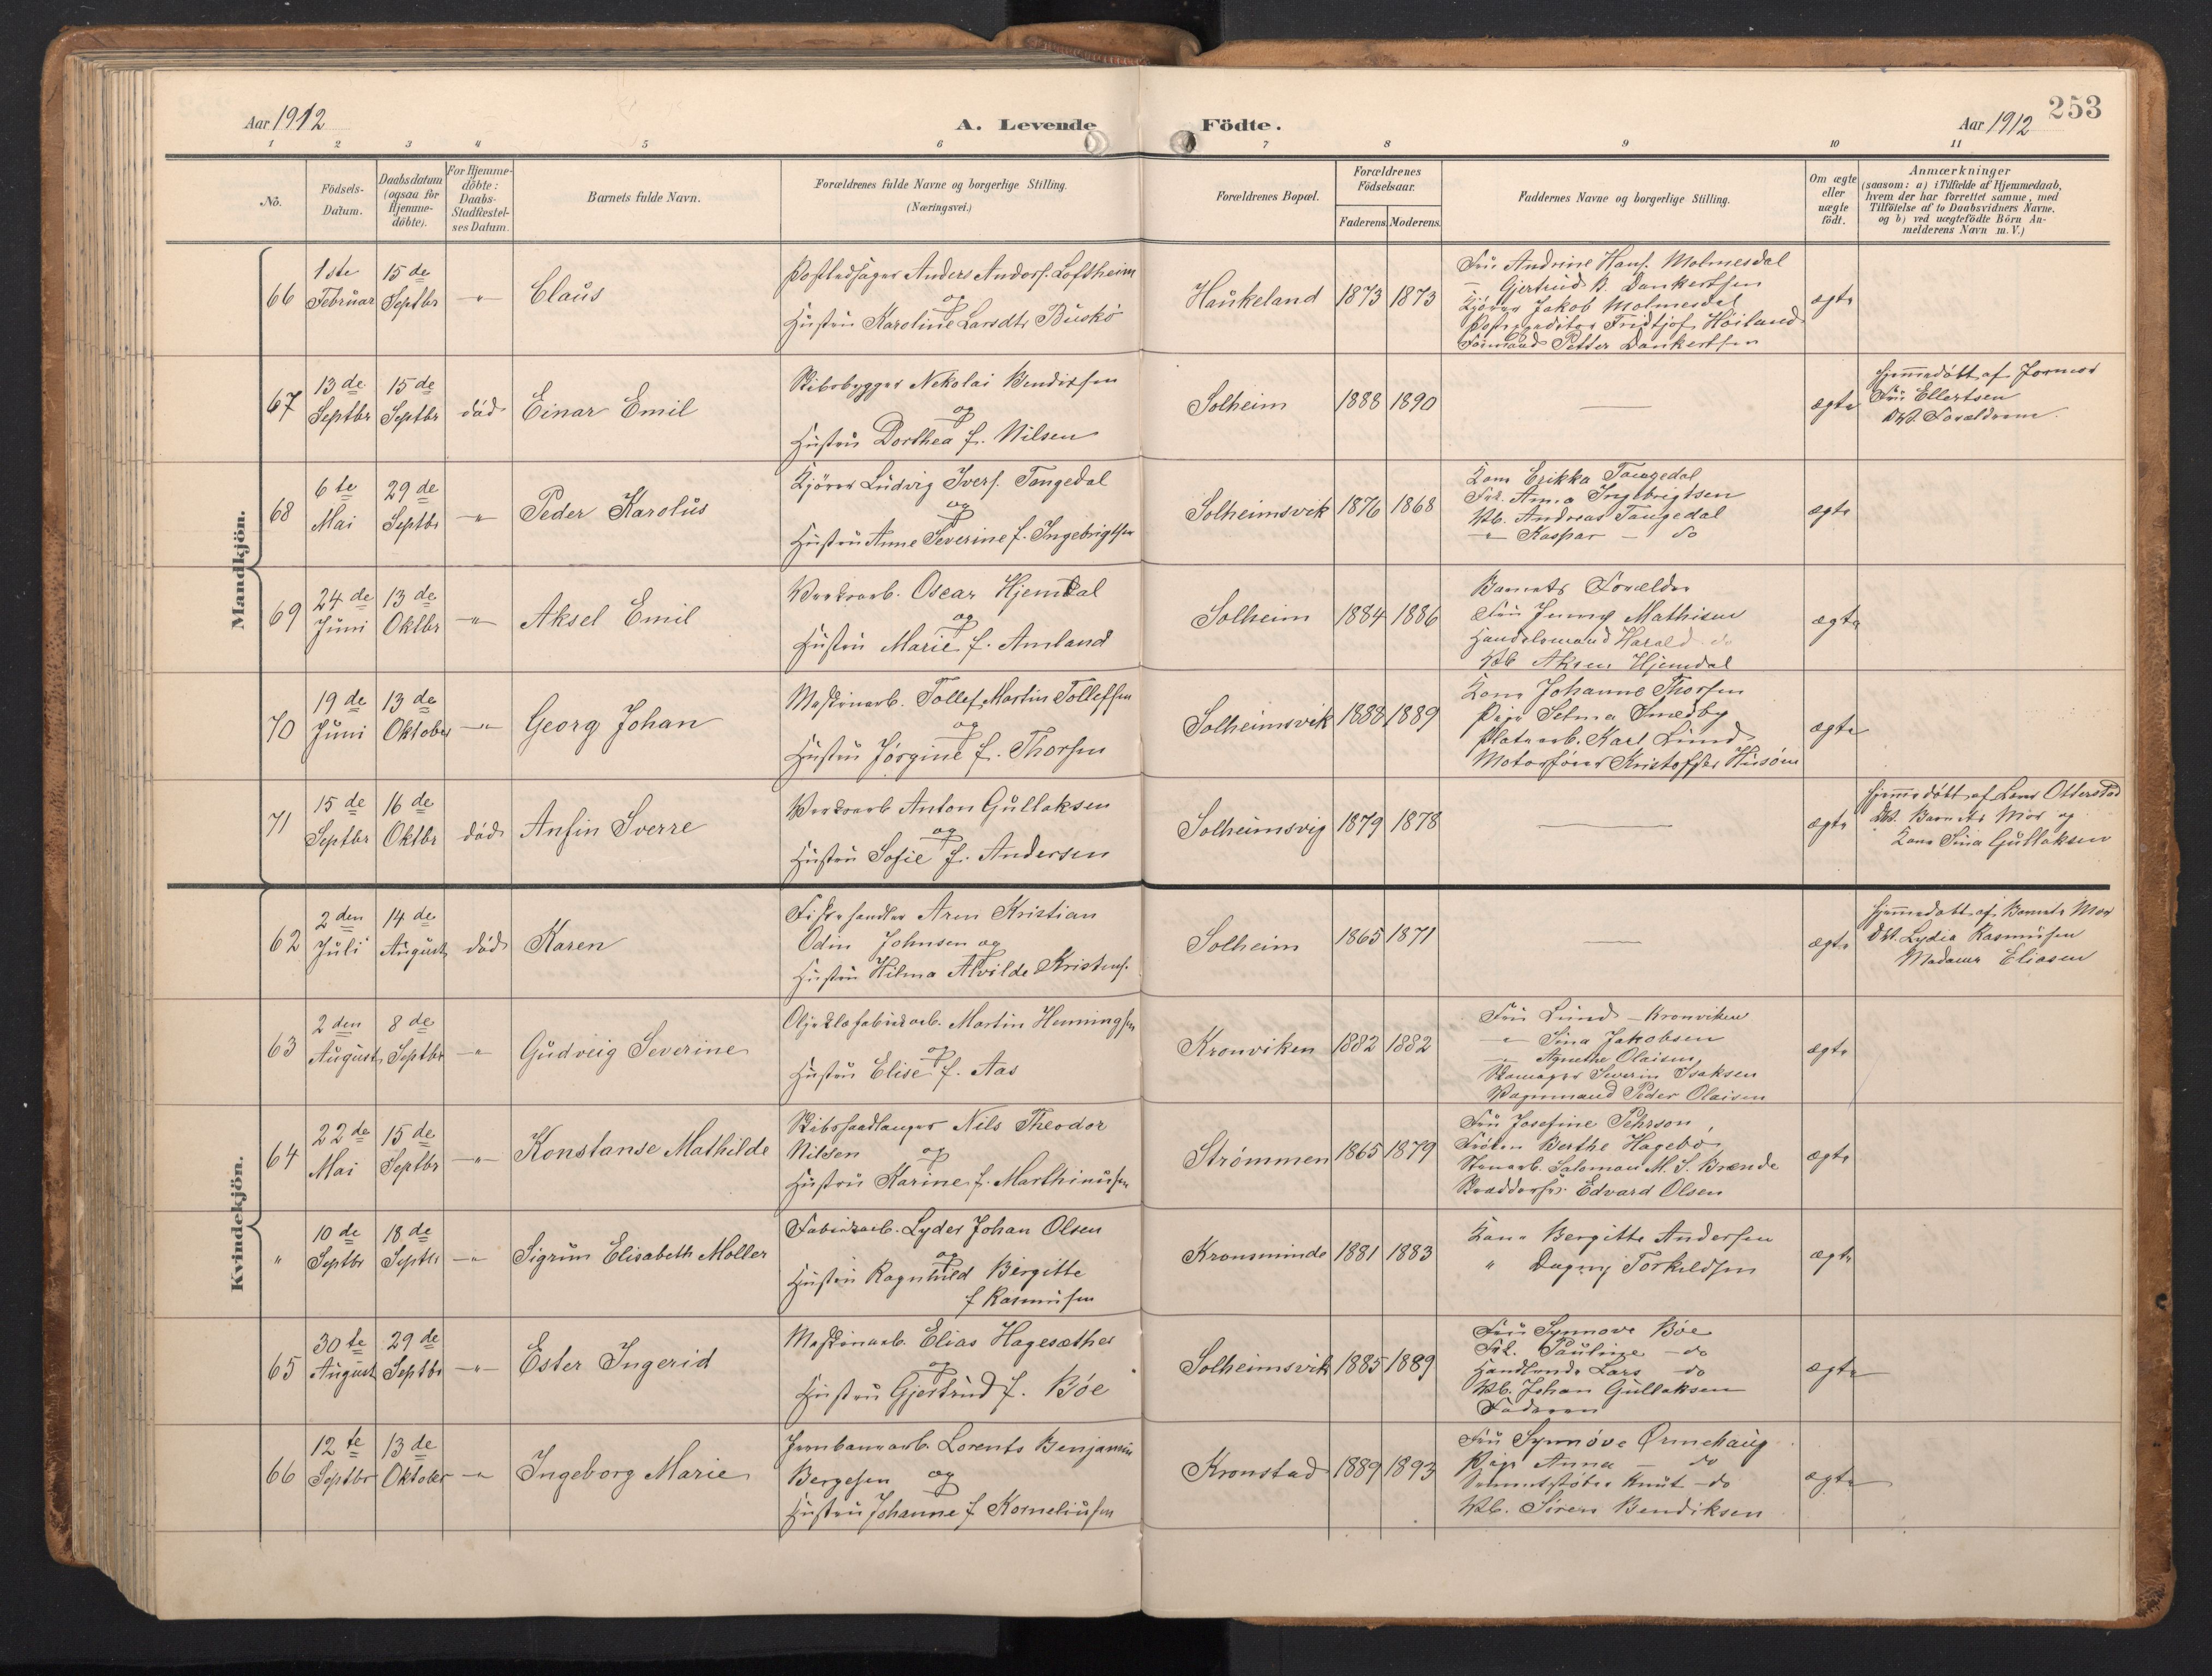 Aar 1912
A. Levende Födte.
Aar 1912
253
1 2 3 4 5 6 7 8 9 10 11
No.
Födsels-
Datum.
Daabsdatum
(ogsaa for
Hjemme-
døbte).
For Hjemme-
døbte:
Daabs-
Stadfæstel-
ses Datum.
Barnets fulde Navn.
Forældrenes fulde Navne og borgerlige Stilling.
(Næringsvei.)
Forældrenes Bopæl.
Forældrenes
Födselsaar.
Faderens. Moderens.
Faddernes Navne og borgerlige Stilling.
Om ægte
eller
uægte
født.
Anmærkninger
(saasom: a) i Tilfælde af Hjemmedaab,
hvem der har forrettet samme, med
Tilföielse af to Daabsvidners Navne.
og b) ved uægtefödte Börn An-
melderens Navn m. V.)
Mandkjön.
66
1ste
Februar
15de
Septbr
-"-
Claus
Anders Anders. Loftheim
og
Hustru Karoline Larsdtr Buskö
Haukeland
1873
1873
Fru Andrine Hans. Molmesdal
- Gjertrud B. Dankertsen
Kjører Jakob Molmesdal
Postexpeditør Fridtjof Höiland
Formand Petter Dankertsen
ægte
67
13de
Septbr
15de
Septbr
død
Einar Emil
Skibsbygger Nekolai Bendixsen
og
Hustru Dorthea f. Nilsen
Solheim
1888
1890
ægte
Hjemmedøbt af Jormor
Fru Ellertsen
DV. Forældrene.
68
6te
Mai
29de
Septbr
-"-
Peder Karolus
Kjører Ludvig Ivers. Tangedal
og
Hustru Anne Severine f. Ingebrigtsen
Solheimsvik
1876
1868
Kone Erikka Tangedal
Frk. Anna Ingebrigtsen
Ub. Andreas Tangedal
-"- Kaspar - do
ægte
69
24de
Juni
13de
Oktbr
-"-
Aksel Emil
Verksarb. Oscar Hjemdal
og
Hustru Marie f. Amland
Solheim
1884
1886
Barnets Forældre
Fru Jenny Mathisen
Handelsmand Harald do
Ub Aksen Hjemdal
ægte
70
19de
Juni
13de
Oktober
-"-
Georg Johan
Maskinarb. Tollef Martin Tollefsen
og
Hustru Jørgine f. Thorsen
Solheimsvik
1888
1889
Kone Johanne Thorsen
Pige Selma Smedby
Platearb. Karl Lund
Motorfører Kristoffer Husøen
ægte
71
15de
Septbr
16de
Oktbr
død
Anfin Sverre
Verksarb Anton Gullaksen
og
Hustru Sofie f. Andersen
Solheimsvig
1879
1878
ægte
Hjemmedøbt af Lars Otterstad
DV. Barnets Mor og
Kone Sina Gullaksen
Kvindekjön.
62
2den
Juli
14de
August
død
Karen
Fiskehandler Aren Kristian
Odin Johnsen og
Hustru Hilma Alvilde Kristens.
Solheim
1865
1871
ægte
Hjemmedøbt af Barnets Mor
DV. Lydia Rasmussen
Madame Eliasen
63
2den
August
8de
Septbr
-"-
Gudveig Severine
Oljeklæfabrikarb. Martin Henningsen
og
Hustru Elise f. Aas
Kronviken
1882
1882
Fru Lund - Kronviken
-"- Sina Jakobsen
-"- Agnethe Olaisen
Skomager Severin Isaksen
Vognmand Peder Olaisen
ægte
64
22de
Mai
15de
Septbr
-"-
Konstanse Mathilde
Skibshandlanger Nils Theodor
Nilsen og
Hustru Karine f. Marthinussen
Strømmen
1865
1879
Fru Josefine Pehrson
Frøken Berthe Hagebø
Stenarb. Salomon M. S. Brænde
Edvard Olsen
ægte
"
10de
Septbr
18de
Septbr
-"-
Sigrun Elisabeth Møller
Fabrikarb. Lyder Johan Olsen
og
Hustru Ragnhild Birgitte
f Rasmussen
Kronsminde
1881
1883
Kone Bergitte Andersen
" Dagny Torkildsen
ægte
65
30te
August
29de
Septbr
-"-
Ester Ingerid
Maskinarb. Elias Hagesæther
og
Hustru Gjertrud f. Böe
Solheimsvik
1885
1889
Fru Synnove Böe
Frk. Pauline - do
Handlende Lars do
Ub. Johan Gullaksen
Faderen
ægte
66
12te
Septbr
13de
Oktober
-"-
Ingeborg Marie
Jernbanearb. Lorents Benjamin
Bergesen og
Hustru Johanne f Korneliussen
Kronstad
1889
1893
Fru Synnöve Ørnehaug
Pige Anna - do
Knut - do
Ub. Sören Bendiksen
ægte